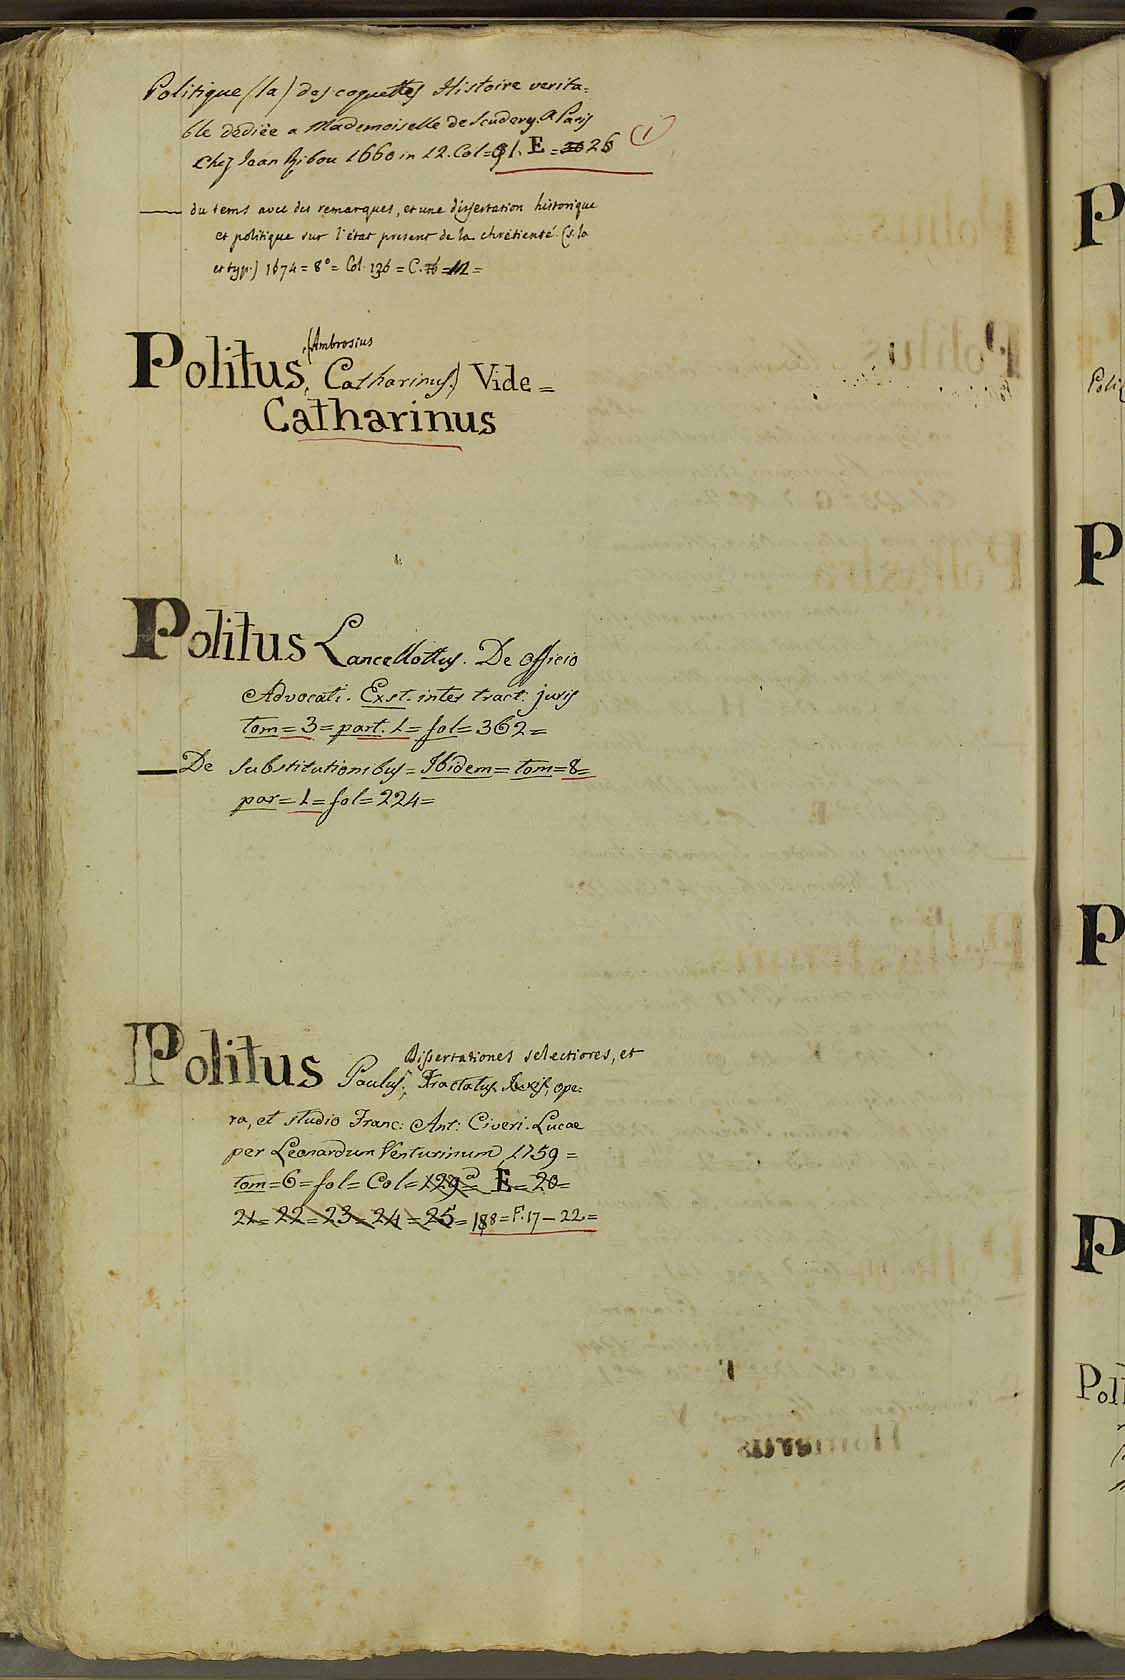 Politique (la) des coquettes Histoire verita=
ble dediée a Mademoiselle de Scudery. A Paris
chez Jean Ribou 1660 in 12. Col= 91. E = 26 (1)
—— du tems avec des remarques, et une dissertation historique
et politique sur l'état present de la chrétienté. (s. la
et typ.) 1674 = 8° = Col. 136 = C. 16 = 12 =
(Ambrosius
Politus, Catharinus.) Vide =
Catharinus
Politus Lancellottus. De Officio
Advocati. Exst. inter tract. juris
tom = 3 = part. 1 = fol = 362 =
—— De substitutionibus = Ibidem = tom = 8 =
par = 1 = fol = 224 =
Dissertationes selectiores, et
Politus Paulus, Tractatus, ope:
ra, et studio Franc: Ant: Civeri. Lucae
per Leonardum Venturinum 1759 =
tom = 6 = fol = Col = 129 = E = 20 =
21 = 22 = 23 = 24 = 25 = 188 = F. 17 — 22 =
P
Poli
P
P
P
Poli